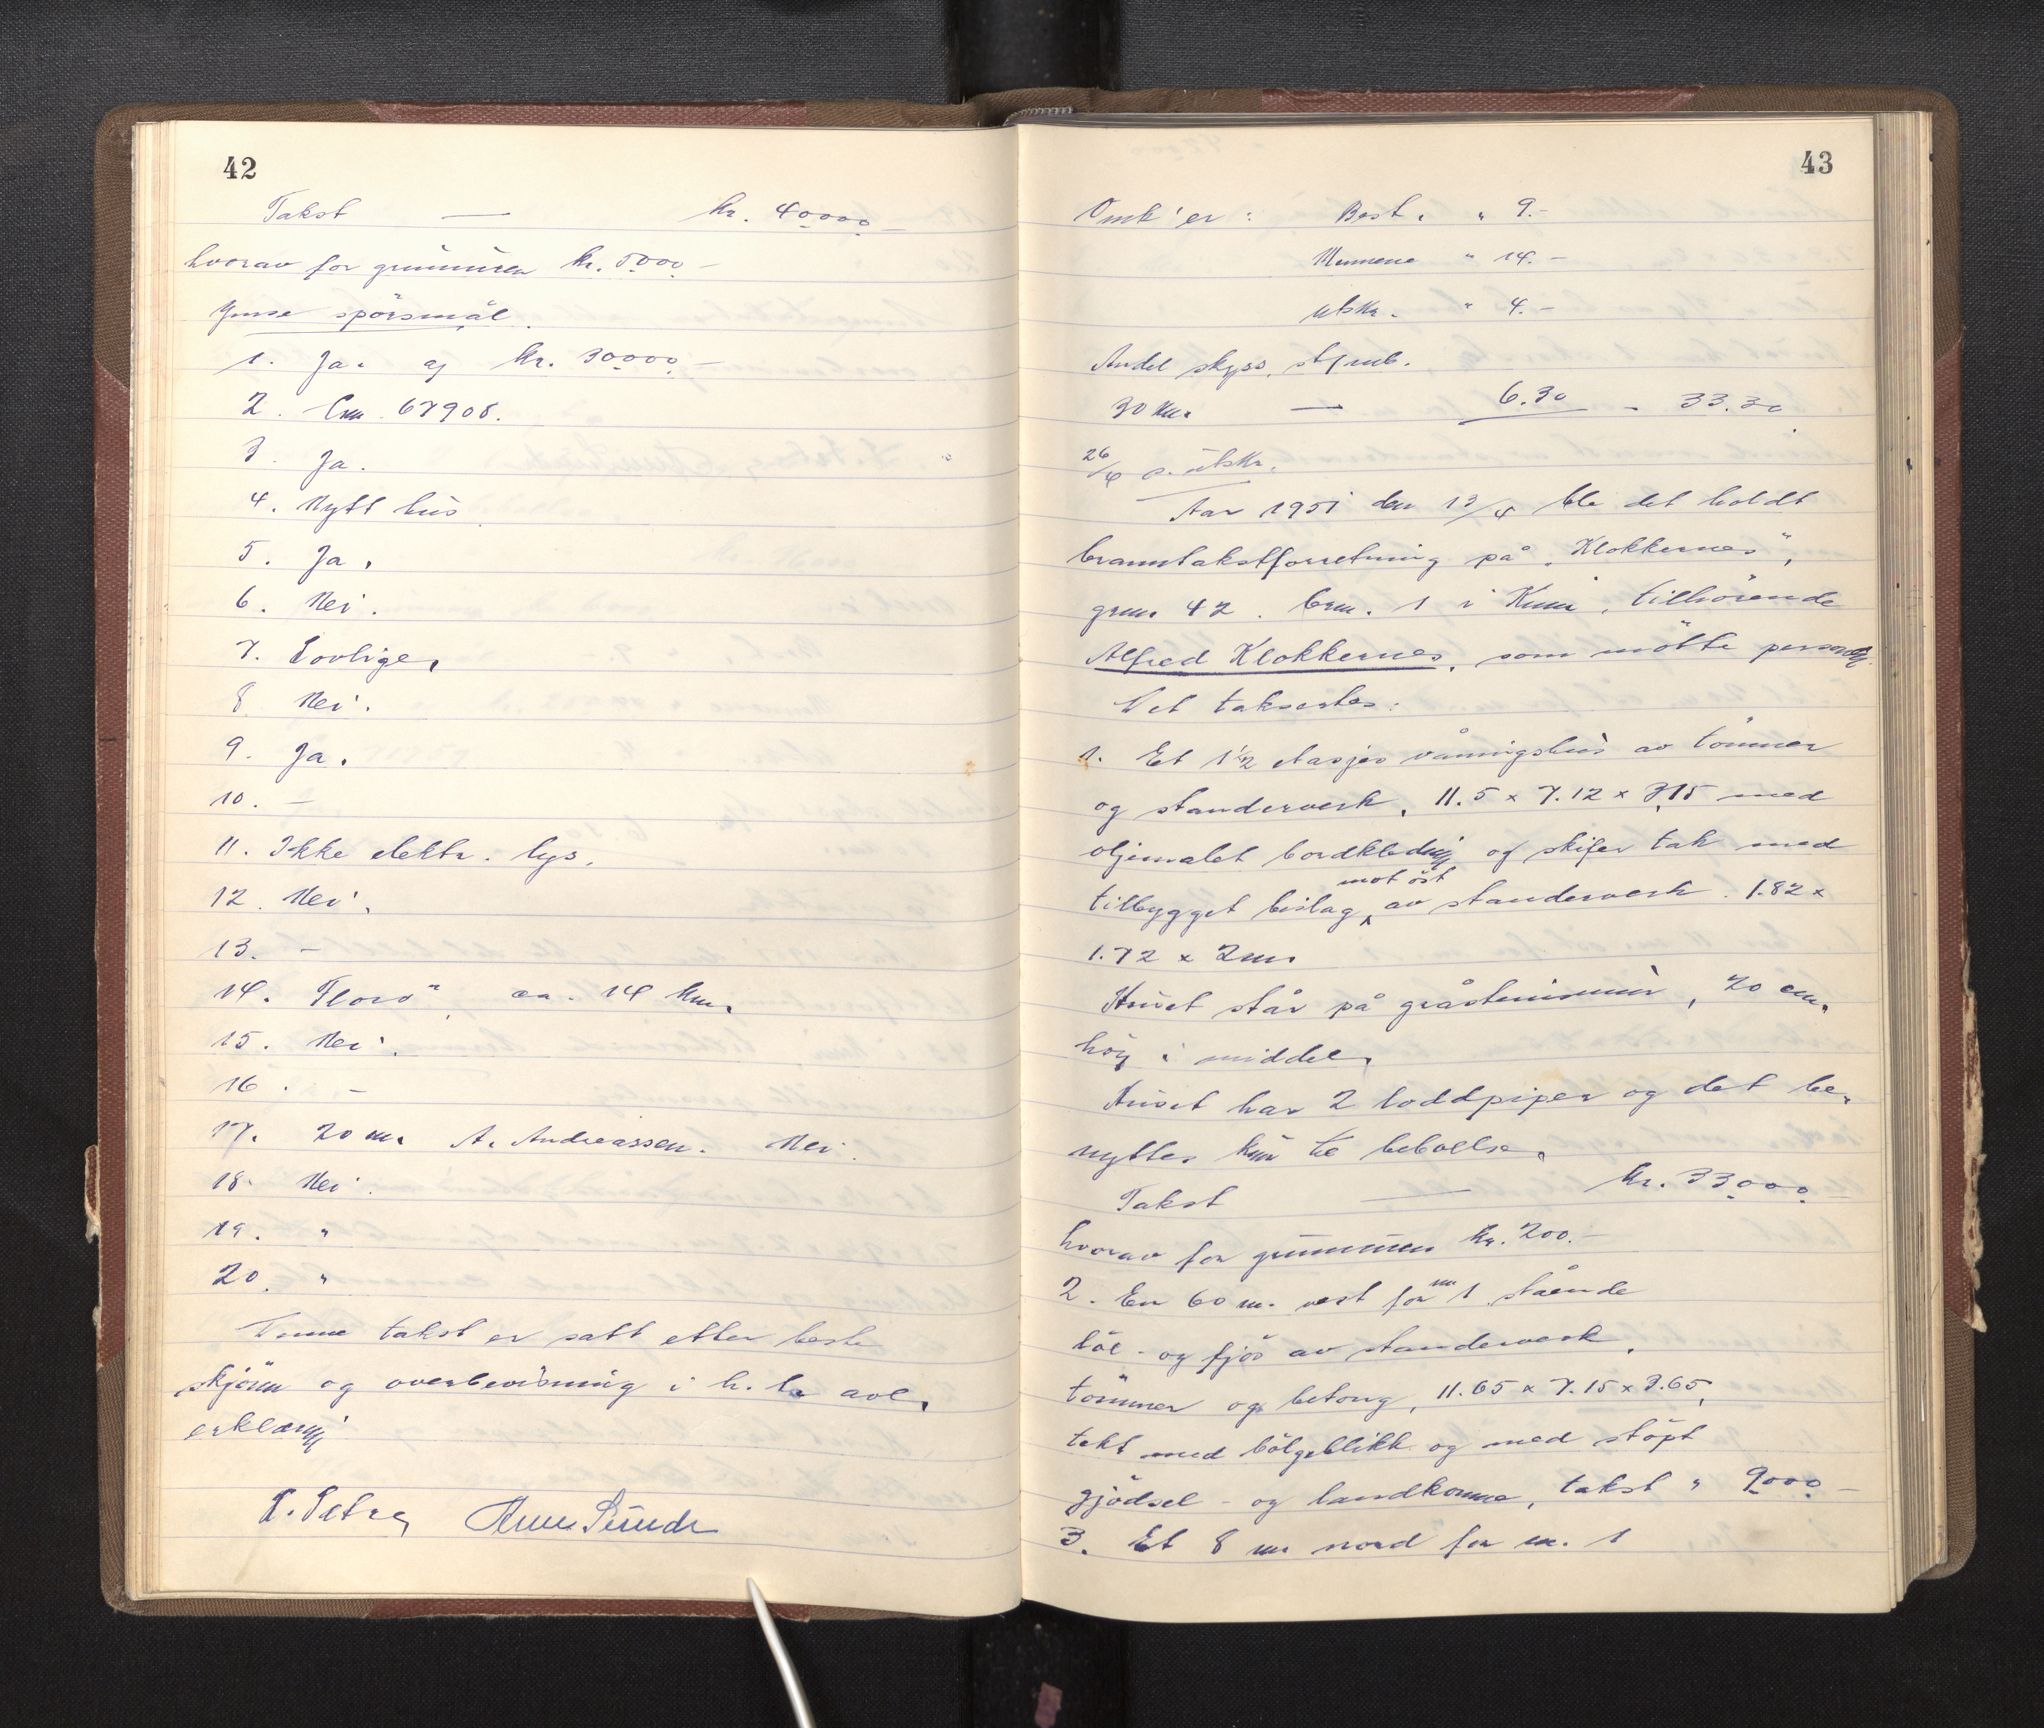 42
Takst — kr. 40000.-
hvorav for grunnmuren kr. 5000.-
Ymse spörsmål.
1. Ja. og kr. 30000.-
2. 67908.
3. Ja.
4. Nytt hus
5. Ja.
6. Nei.
7. Lovlige.
8. Nei.
9. Ja.
10. -
11. Ikke elektr. lys.
12. Nei.
13. -
14. "Florö", ca. 14 km.
15. Nei.
16. -
17. 20 m. A. Andreassen. Nei.
18. Nei.
19. "
20. "
Denne takst er satt etter beste
skjönn og overbevisning i h. t. avl.
erklæring
Sunde
43
Omk'er: Best. " 9.-
Mennene " 14.-
utskr. " 4.-
Andel skyss,
30 km. — 6.30 - 33.30
26/4 s. utskr.
Aar 1951 den 13/4 ble det holdt
branntakstforretning på "Klokkernes",
grnr. 42. brnr. 1 i Kinn, tilhörende
Alfred Klokkernes, som mötte personlig.
Det taksertes:
1. Et 1½ etasjes våningshus av tömmer
og standerverk, 11.5 x 7.12 x 3.15 med
oljemalet bordkledning og skifer tak med
tilbygget bislag mot öst av standerverk. 1.82 x
1.72 x 2 m.
Huset står på gråsteinsmur, 70 cm.
höy i middel.
Huset har 2 loddpiper og det be-
nyttes kun til beboelse.
Takst — kr. 33000.-
hvorav for grunnmuren kr. 200.-
2. En 60 m. vest for nr 1 stående
löe- og fjös av standerverk,
tömmer og betong, 11.65 x 7.15 x 3.65,
tekt med bölgeblikk og med stöpt
gjödsel- og landkomme, takst " 9000.-
3. Et 8 m nord for nr. 1